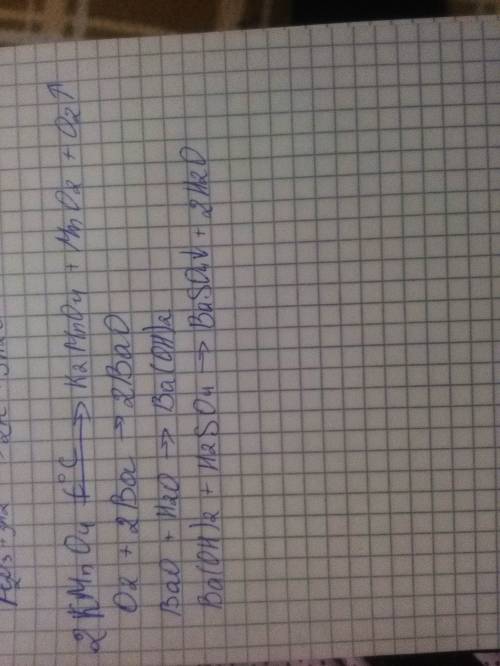 2KMnO4 t°C → K2MnO4 + MnO2 + O2↑
O2 + 2Ba → 2BaO
BaO + H2O → Ba(OH)2
Ba(OH)2 + H2SO4 → BaSO4↓ + 2H2O